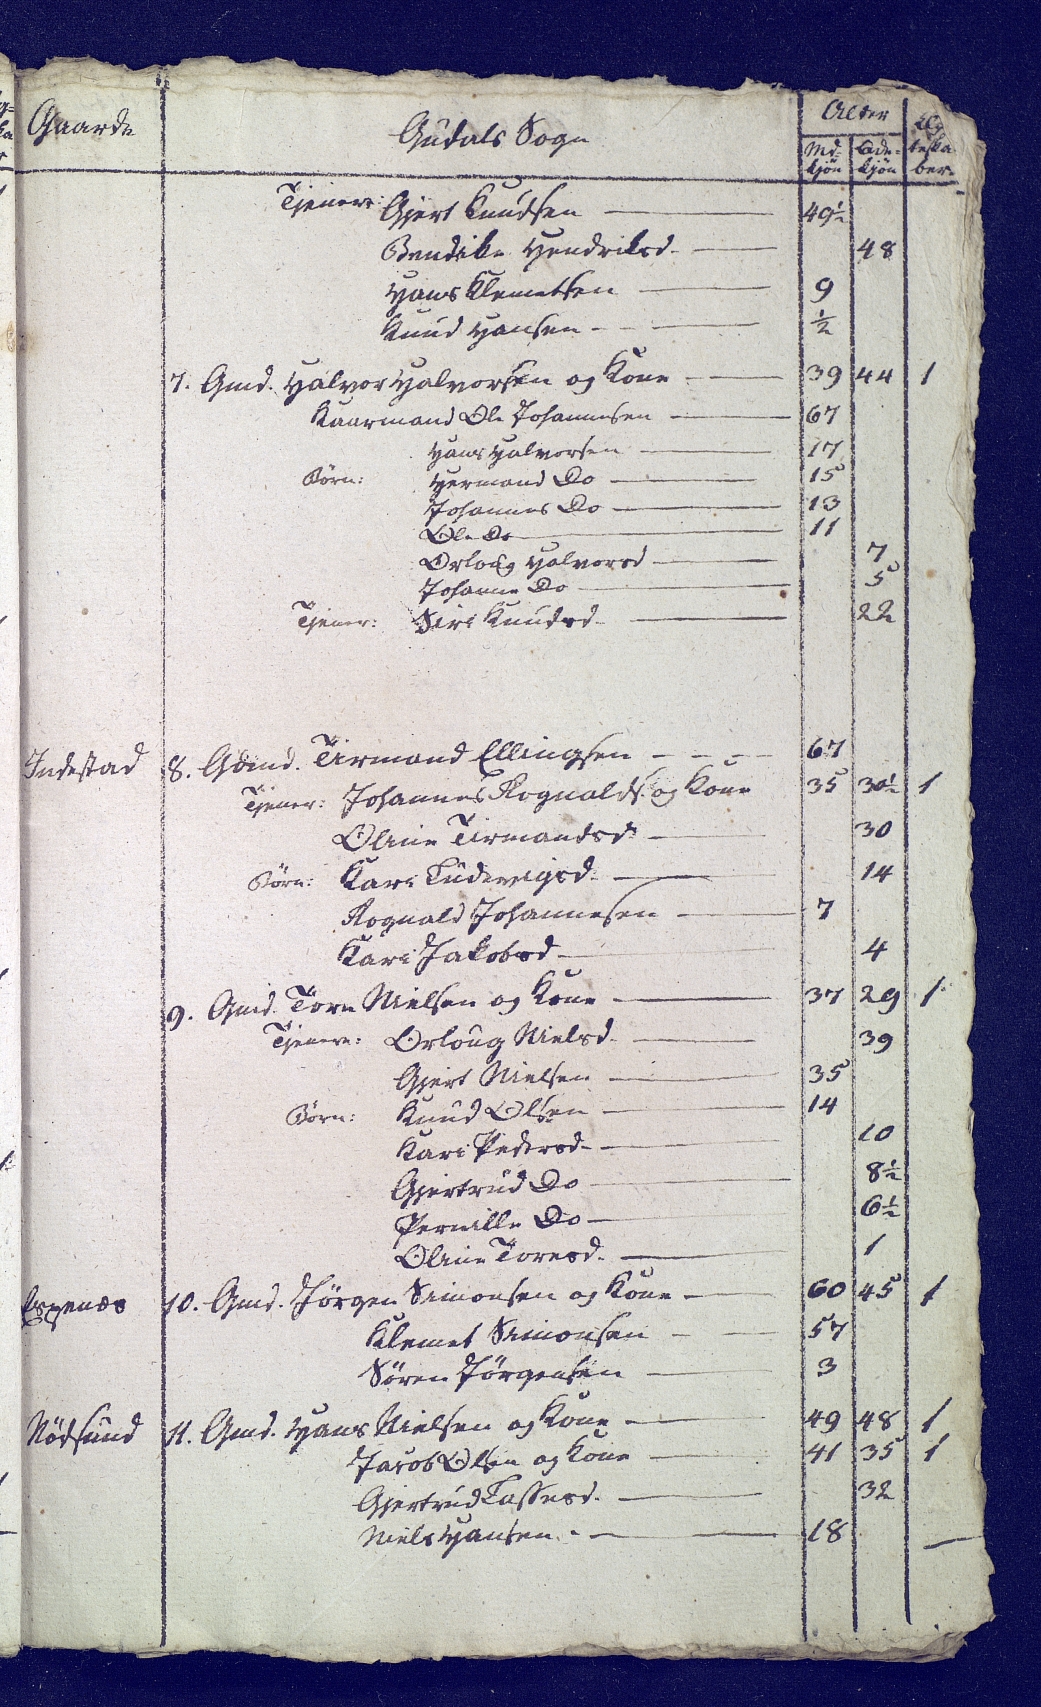 Gaarde Gudals Sogn Alder Ægteskaber
Mdkjön Qdekjön
Tjenere: Gjert Knudsen 49½
Bendike Hendriksd. 48
Hans Klemetsen 9
Knud Hansen ½
7. Gmd. Halvor Halvorsen og Kone 39 44 1
Kaarmand Ole Johannesen 67
Hans Halvorsen 17
Börn: Hermand Do 15
Johannes Do 13
Ole Do 11
Orloug Halvorsd 7
Johanne Do 5
Tjener: Siri Knudsd 22
Indestad 8. Gdmd. Tirmand Ellingsen 67
Tjener: Johannes Rognalds. og Kone 35 30½ 1
Oline Tirmandsd: 30
Börn: Kari Ludevigsd. 14
Rognald Johannesen 7
Kari Jakobsd 4
9. Gmd. Tore Nielsen og Kone 37 29 1
Tjenere: Orloug Nielsd. 39
Gjert Nielsen 35
Börn: Knud Olsen 14
Kari Pedersd 10
Gjertrud Do 8½
Pernille Do 6½
Oline Toresd. 1
Espenæs 10. Gmd. Jörgen Simonsen og Kone 60 45 1
Klemet Simonsen 57
Sören Jörgensen 3
Nödsund 11. Gmd. Hans Nielsen og Kone 49 48 1
Jacob Olsen og Kone 41 35 1
Gjertrud Lassesd. 32
Niels Hansen 18